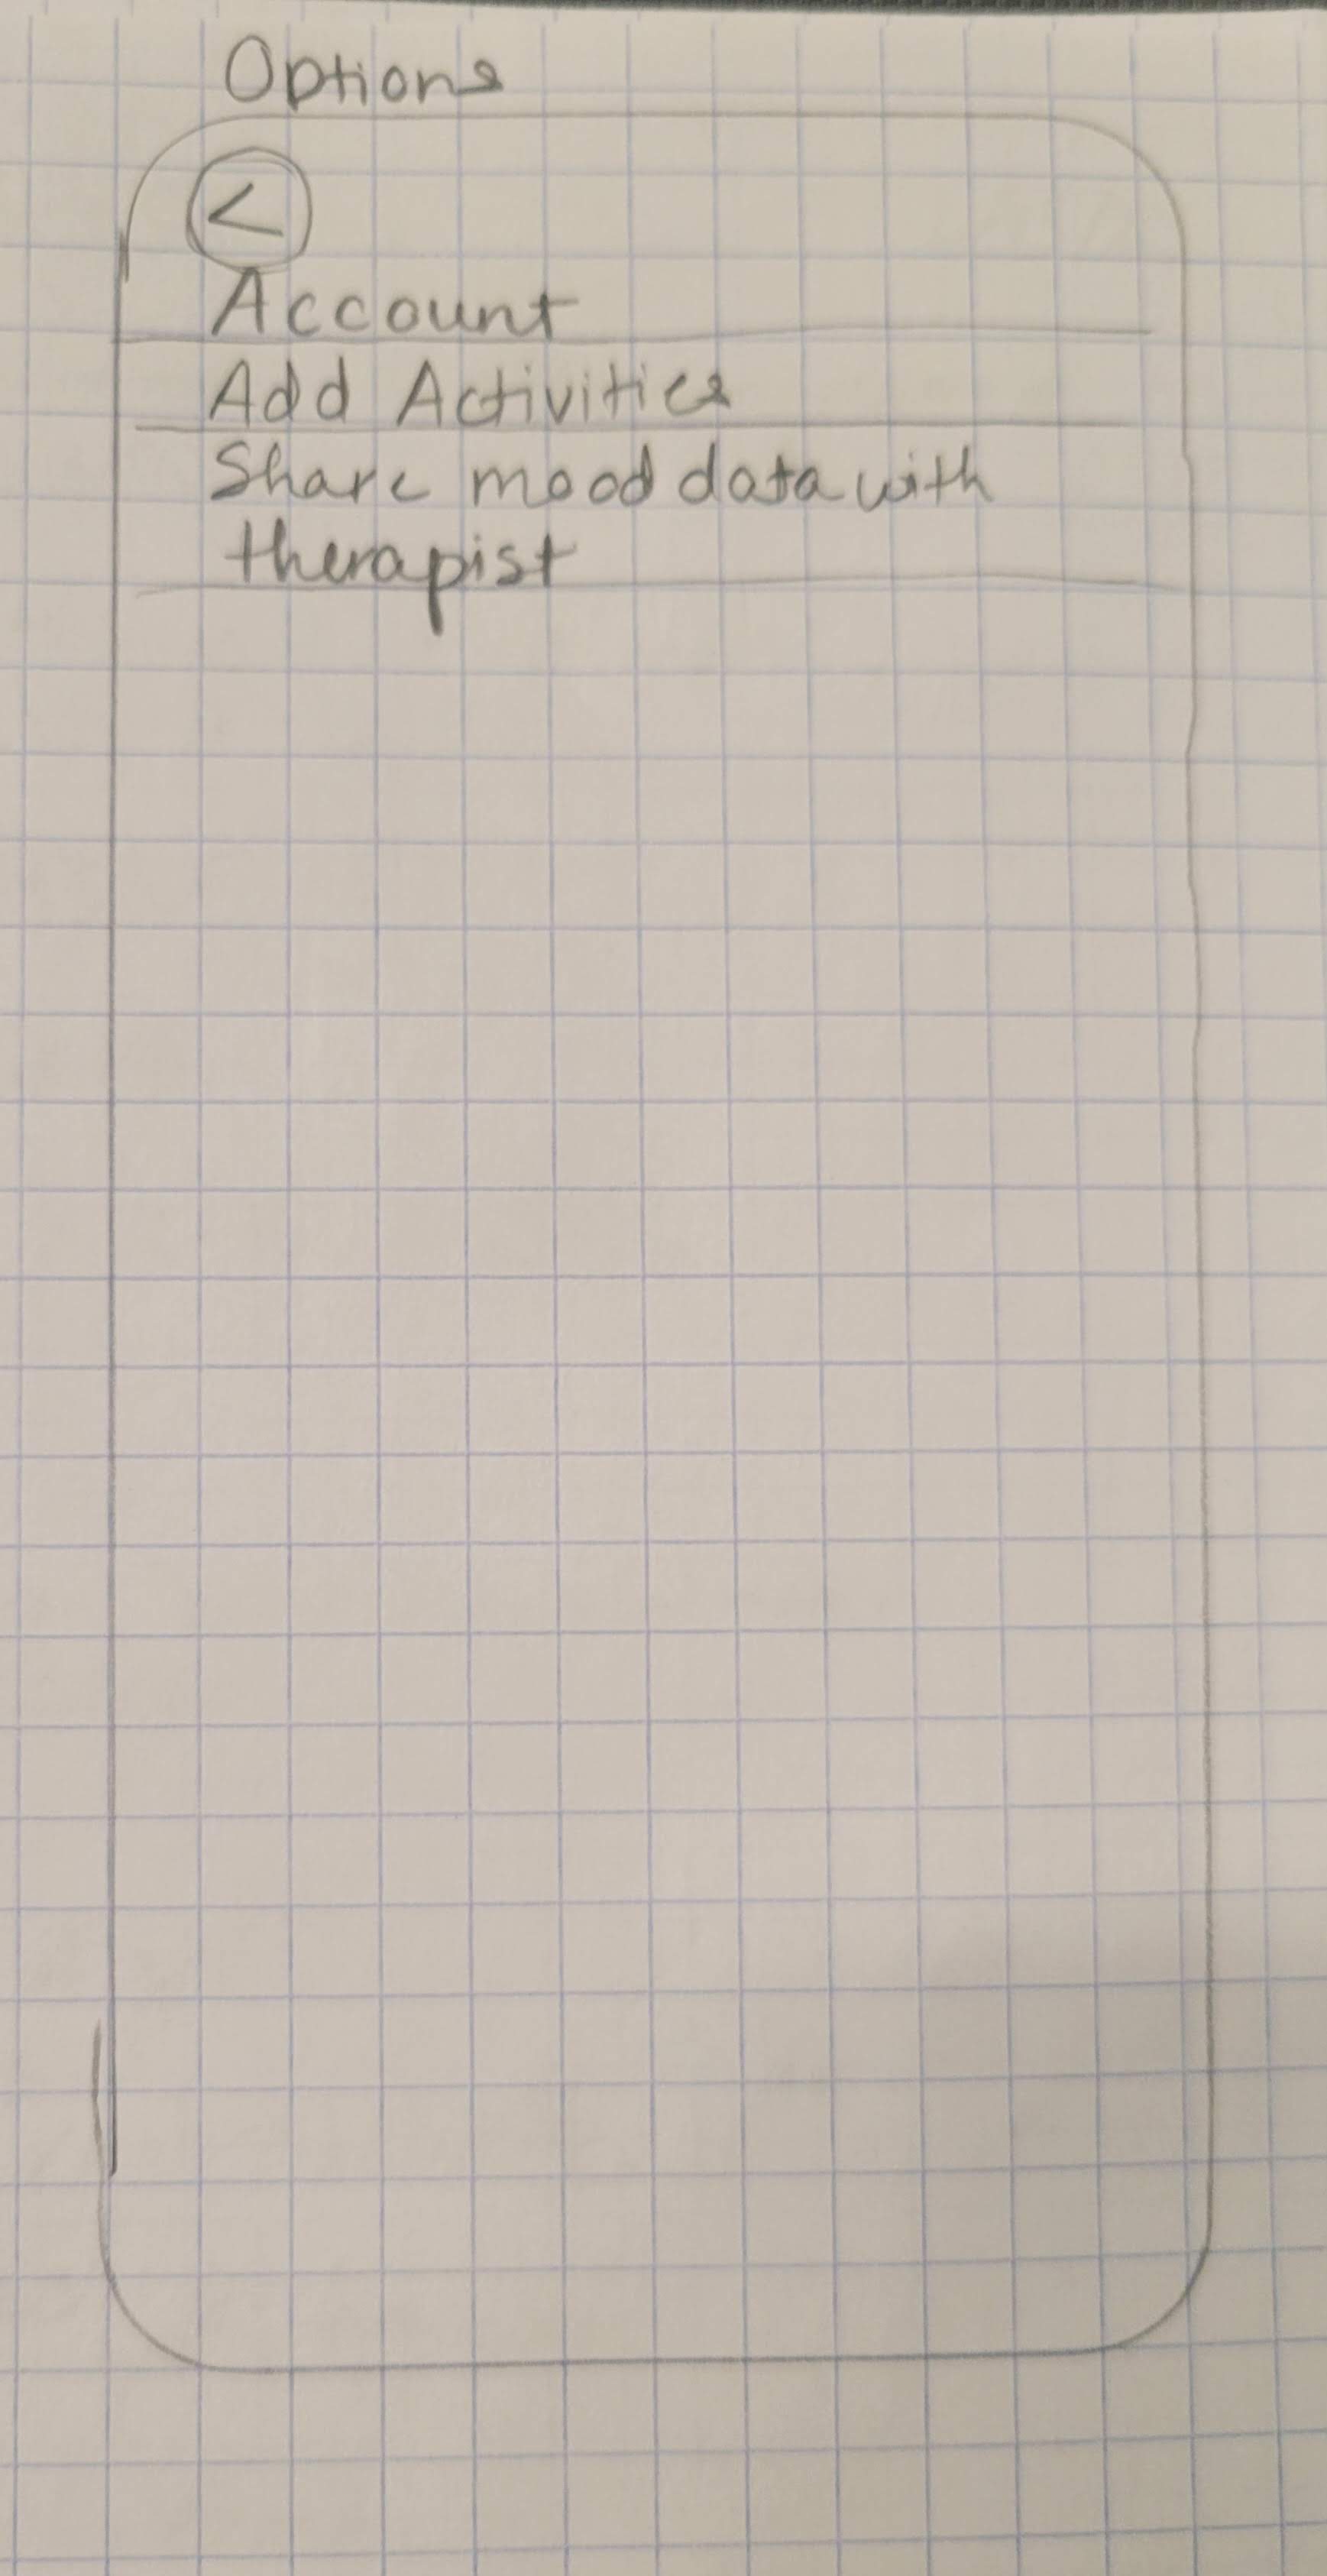 Options
<
Account
Add Activities
Share mood data with
therapist